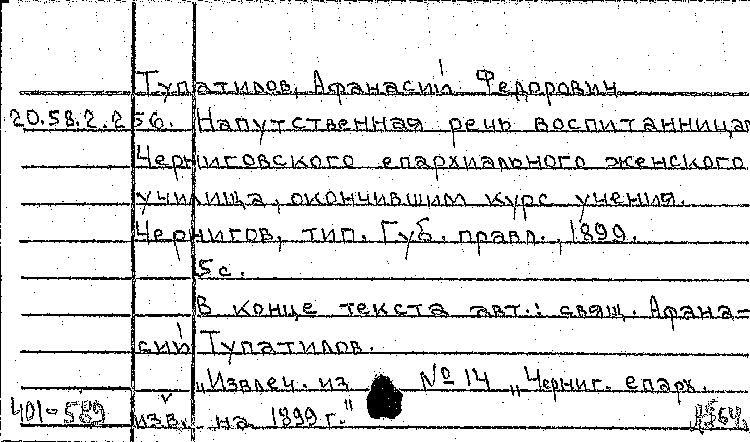 Тупатилов, Афанасий Федорович
20.58.2.256. Напутственная речь воспитанницам
Черниговского епархиального женского
училища, окончившим курс учения.
Чернигов, тип. Губ. правл., 1899.
5 с.
В конце текста авт.: свящ. Афана=
сий Тупатилов.
„Извлеч. из № 14 „Черниг. епарх.
401-589 изв. на 1899 г."